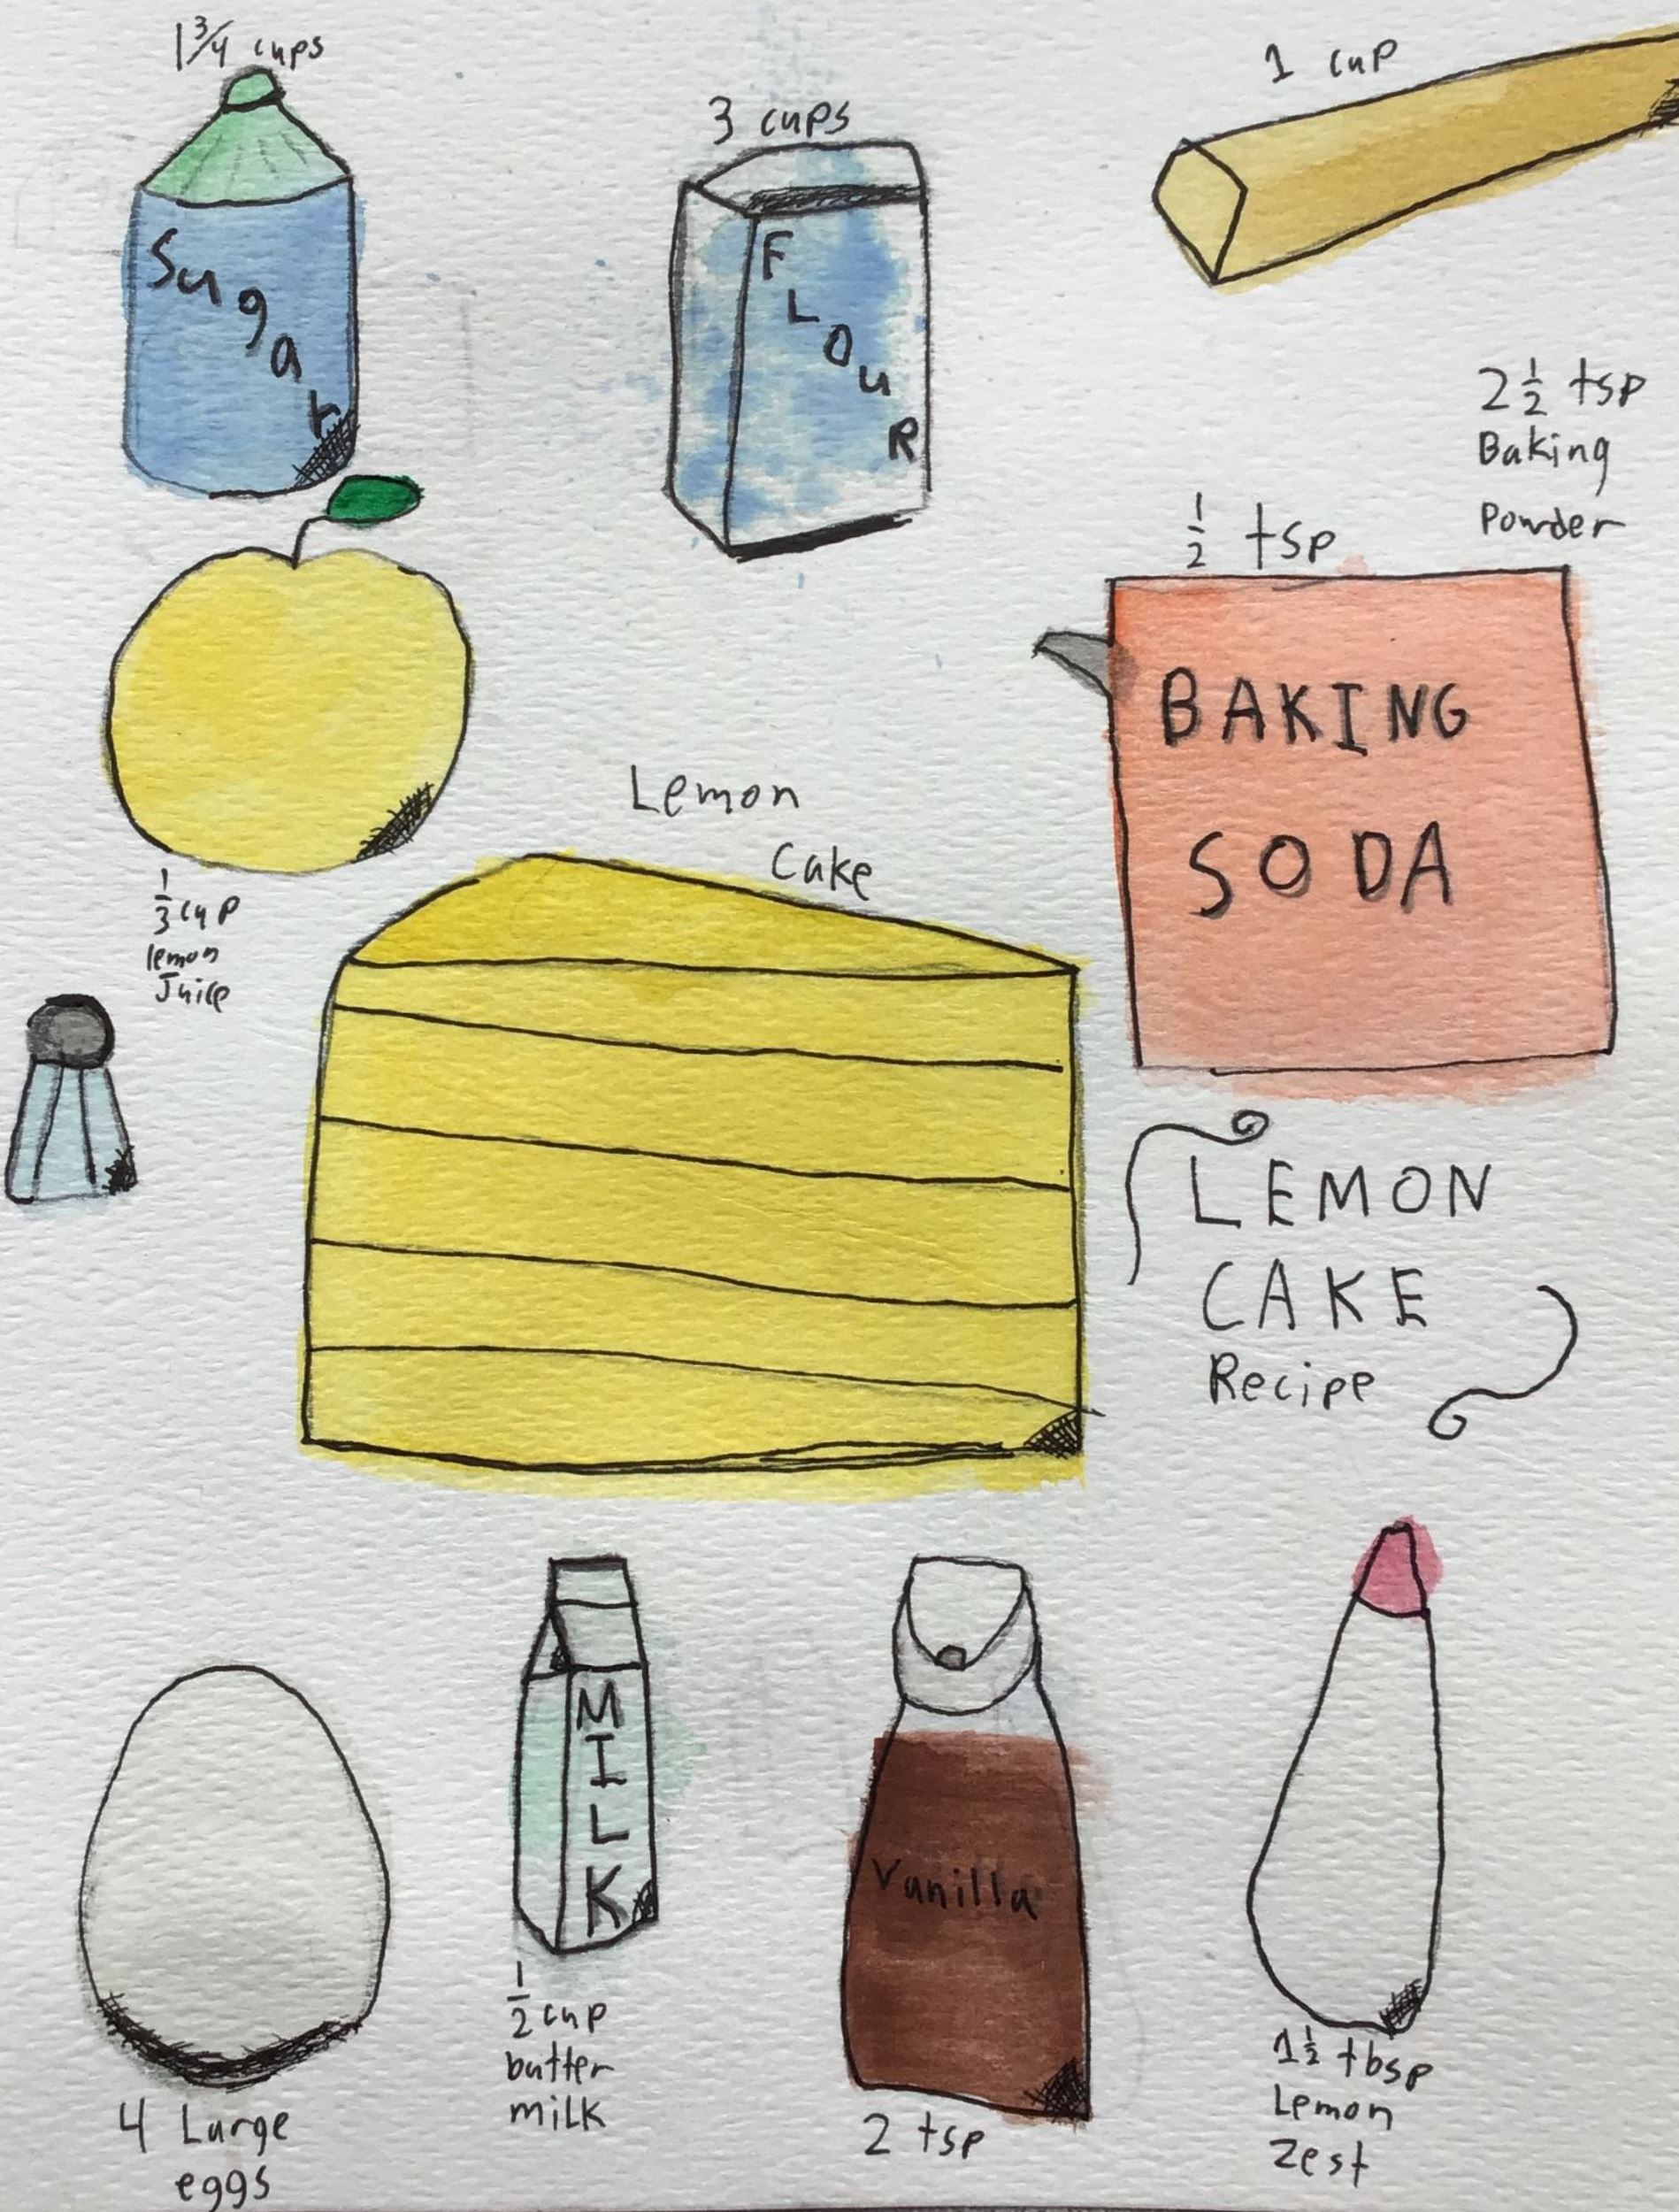 1 3/4 cups
Sugar
3 cups
FLOUR
1 cup
2 1/2 tsp
Baking
Powder
1/2 tsp
BAKING
SODA
1/3 cup
lemon
Juice
Lemon
Cake
LEMON
CAKE
Recipe
4 Large
eggs
MILK
1/2 cup
butter
milk
Vanilla
2 tsp
1 1/2 tbsp
Lemon
Zest